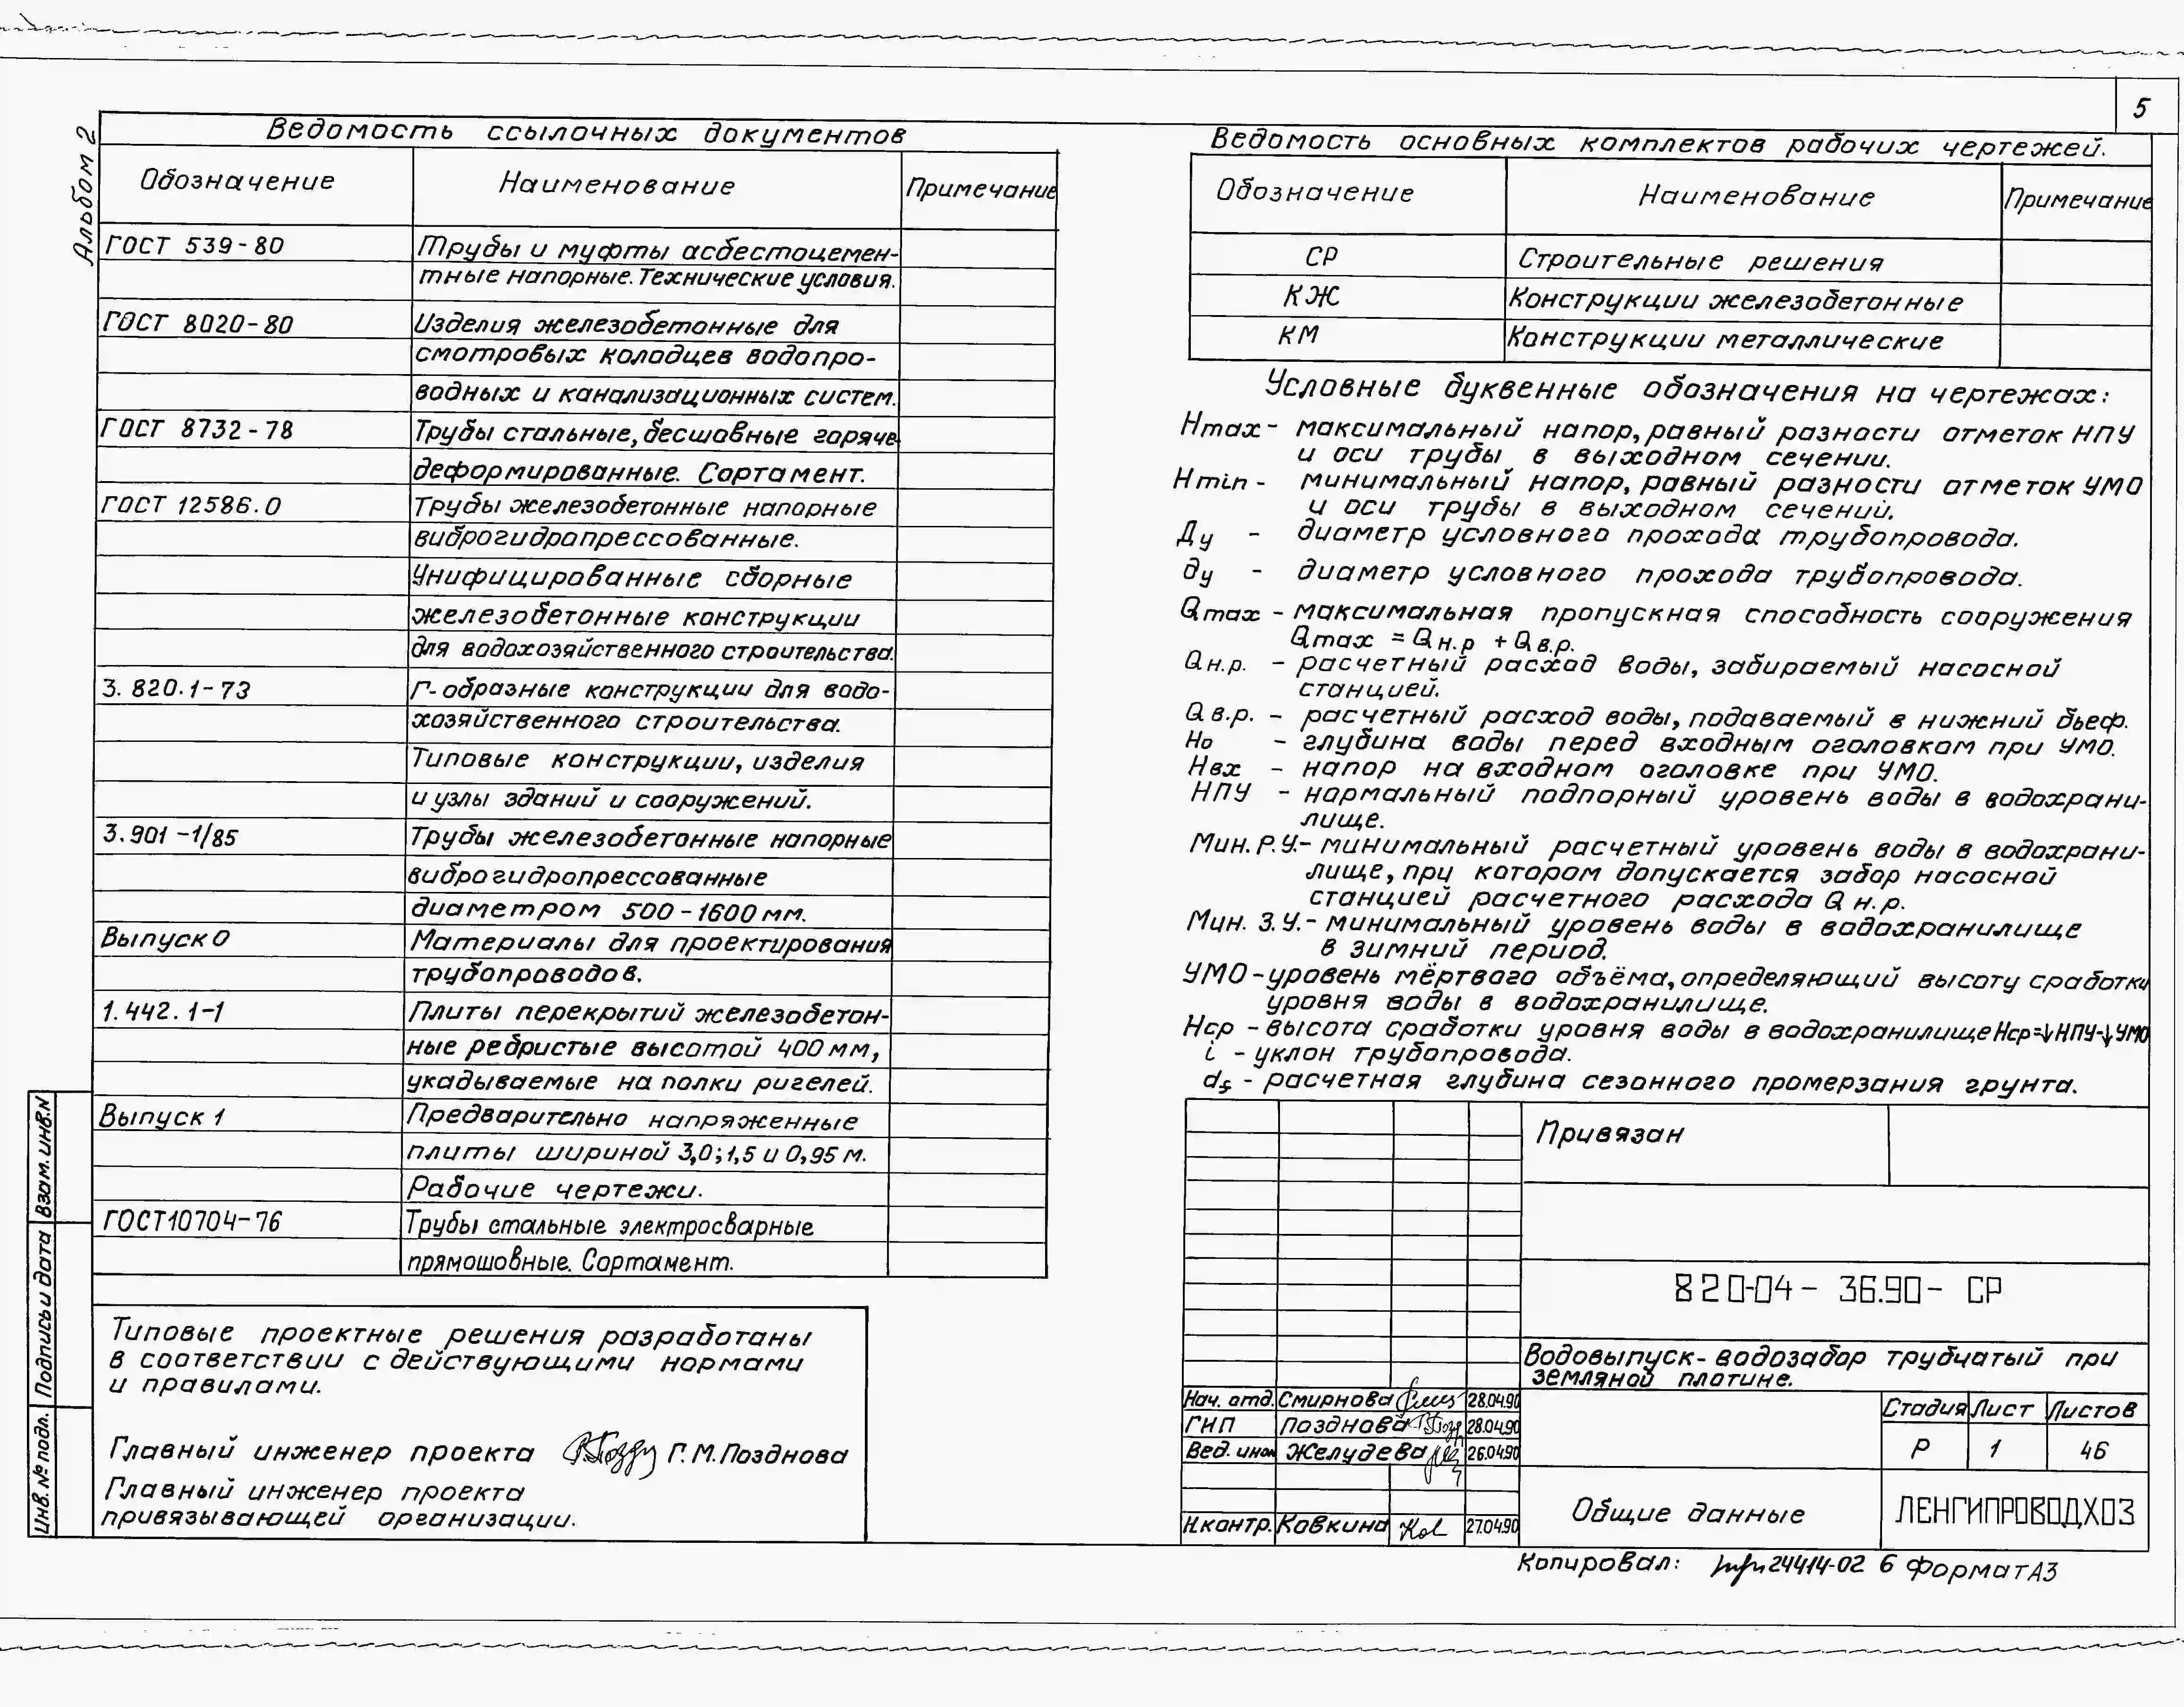 5
Альбом 2
Ведомость ссылочных документов
Обозначение Наименование Примечание
ГОСТ 539-80 Трубы и муфты асбестоцемен-
тные напорные. Технические условия.
ГОСТ 8020-80 Изделия железобетонные для
смотровых колодцев водопро-
водных и канализационных систем.
ГОСТ 8732-78 Трубы стальные, бесшовные горяче
деформированные. Сортамент.
ГОСТ 12586.0 Трубы железобетонные напорные
виброгидропрессованные.
Унифицированные сборные
железобетонные конструкции
для водохозяйственного строительства.
3.820.1-73 Г-образные конструкции для водо-
хозяйственного строительства.
Типовые конструкции, изделия
и узлы зданий и сооружений.
3.901-1/85 Трубы железобетонные напорные
виброгидропрессованные
диаметром 500-1600 мм.
Выпуск 0 Материалы для проектирования
трубопроводов.
1.442.1-1 Плиты перекрытий железобетон-
ные ребристые высотой 400 мм,
укадываемые на полки ригелей.
Выпуск 1 Предварительно напряженные
плиты шириной 3,0; 1,5 и 0,95 м.
Рабочие чертежи.
ГОСТ10704-76 Трубы стальные электросварные
прямошовные. Сортамент.
Типовые проектные решения разработаны
в соответствии с действующими нормами
и правилами.
Главный инженер проекта Г.М.Позднова
Главный инженер проекта
привязывающей организации.
Взам. инв.N
Подпись и дата
Инв. № подл.
Ведомость основных комплектов рабочих чертежей.
Обозначение Наименование Примечание
СР Строительные решения
КЖ Конструкции железобетонные
КМ Конструкции металлические
Условные буквенные обозначения на чертежах:
Hmax - максимальный напор, равный разности отметок НПУ
и оси трубы в выходном сечении.
Hmin - минимальный напор, равный разности отметок УМО
и оси трубы в выходном сечений.
Ду - диаметр условного прохода трубопровода.
ду - диаметр условного прохода трубопровода.
Qmax - максимальная пропускная способность сооружения
Qmax = Qн.р + Qв.р.
Qн.р. - расчетный расход воды, забираемый насосной
станцией.
Qв.р. - расчетный расход воды, подаваемый в нижний бьеф.
Но - глубина воды перед входным оголовком при УМО.
Нвх - напор на входном оголовке при УМО.
НПУ - нормальный подпорный уровень воды в водохрани-
лище.
Мин. Р.У.- минимальный расчетный уровень воды в водохрани-
лище, при котором допускается забор насосной
станцией расчетного расхода Q н.р.
Мин. З.У.- минимальный уровень воды в водохранилище
в зимний период.
УМО - уровень мёртвого объёма, определяющий высоту сработки
уровня воды в водохранилище.
Нср - высота сработки уровня воды в водохранилище Нср=↓НПУ-↓УМО
i - уклон трубопровода.
df - расчетная глубина сезонного промерзания грунта.
Привязан
820-04-36.90-СР
Водовыпуск-водозабор трубчатый при
земляной плотине.
Нач. отд. Смирнова 28.04.90
ГИП Позднова 28.04.90
Вед. инж Желудева 26.04.90
Н.контр. Ковкина 27.04.90
Стадия Лист Листов
Р 1 46
Общие данные
ЛЕНГИПРОВОДХОЗ
Копировал: 24414-02 6 Формат А3